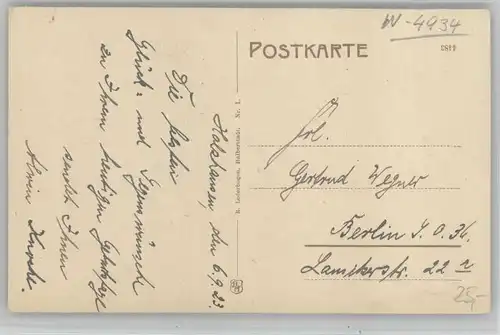 W-4934
POSTKARTE
1819
Halshausen, den 6.9.23.
Die besten
Glück- und Segenswünsche
zu Ihrem heutigen
sendet Ihnen
Alwin
R. Lederbogen, Halberstadt. Nr. 1.
Frl.
Gertrud Wegner
Berlin S.O. 36.
Lausitzerstr. 22 II
25,-